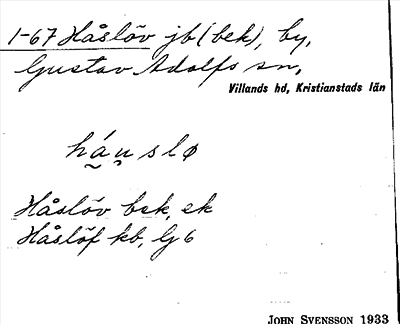 1-67 Håslöv jb (bek), by,
Gustav Adolfs sn,
Villands hd, Kristianstads län
háu̯slø
Håslöv bek, ek
Håslöf kb, lj 6
JOHN SVENSSON 1933